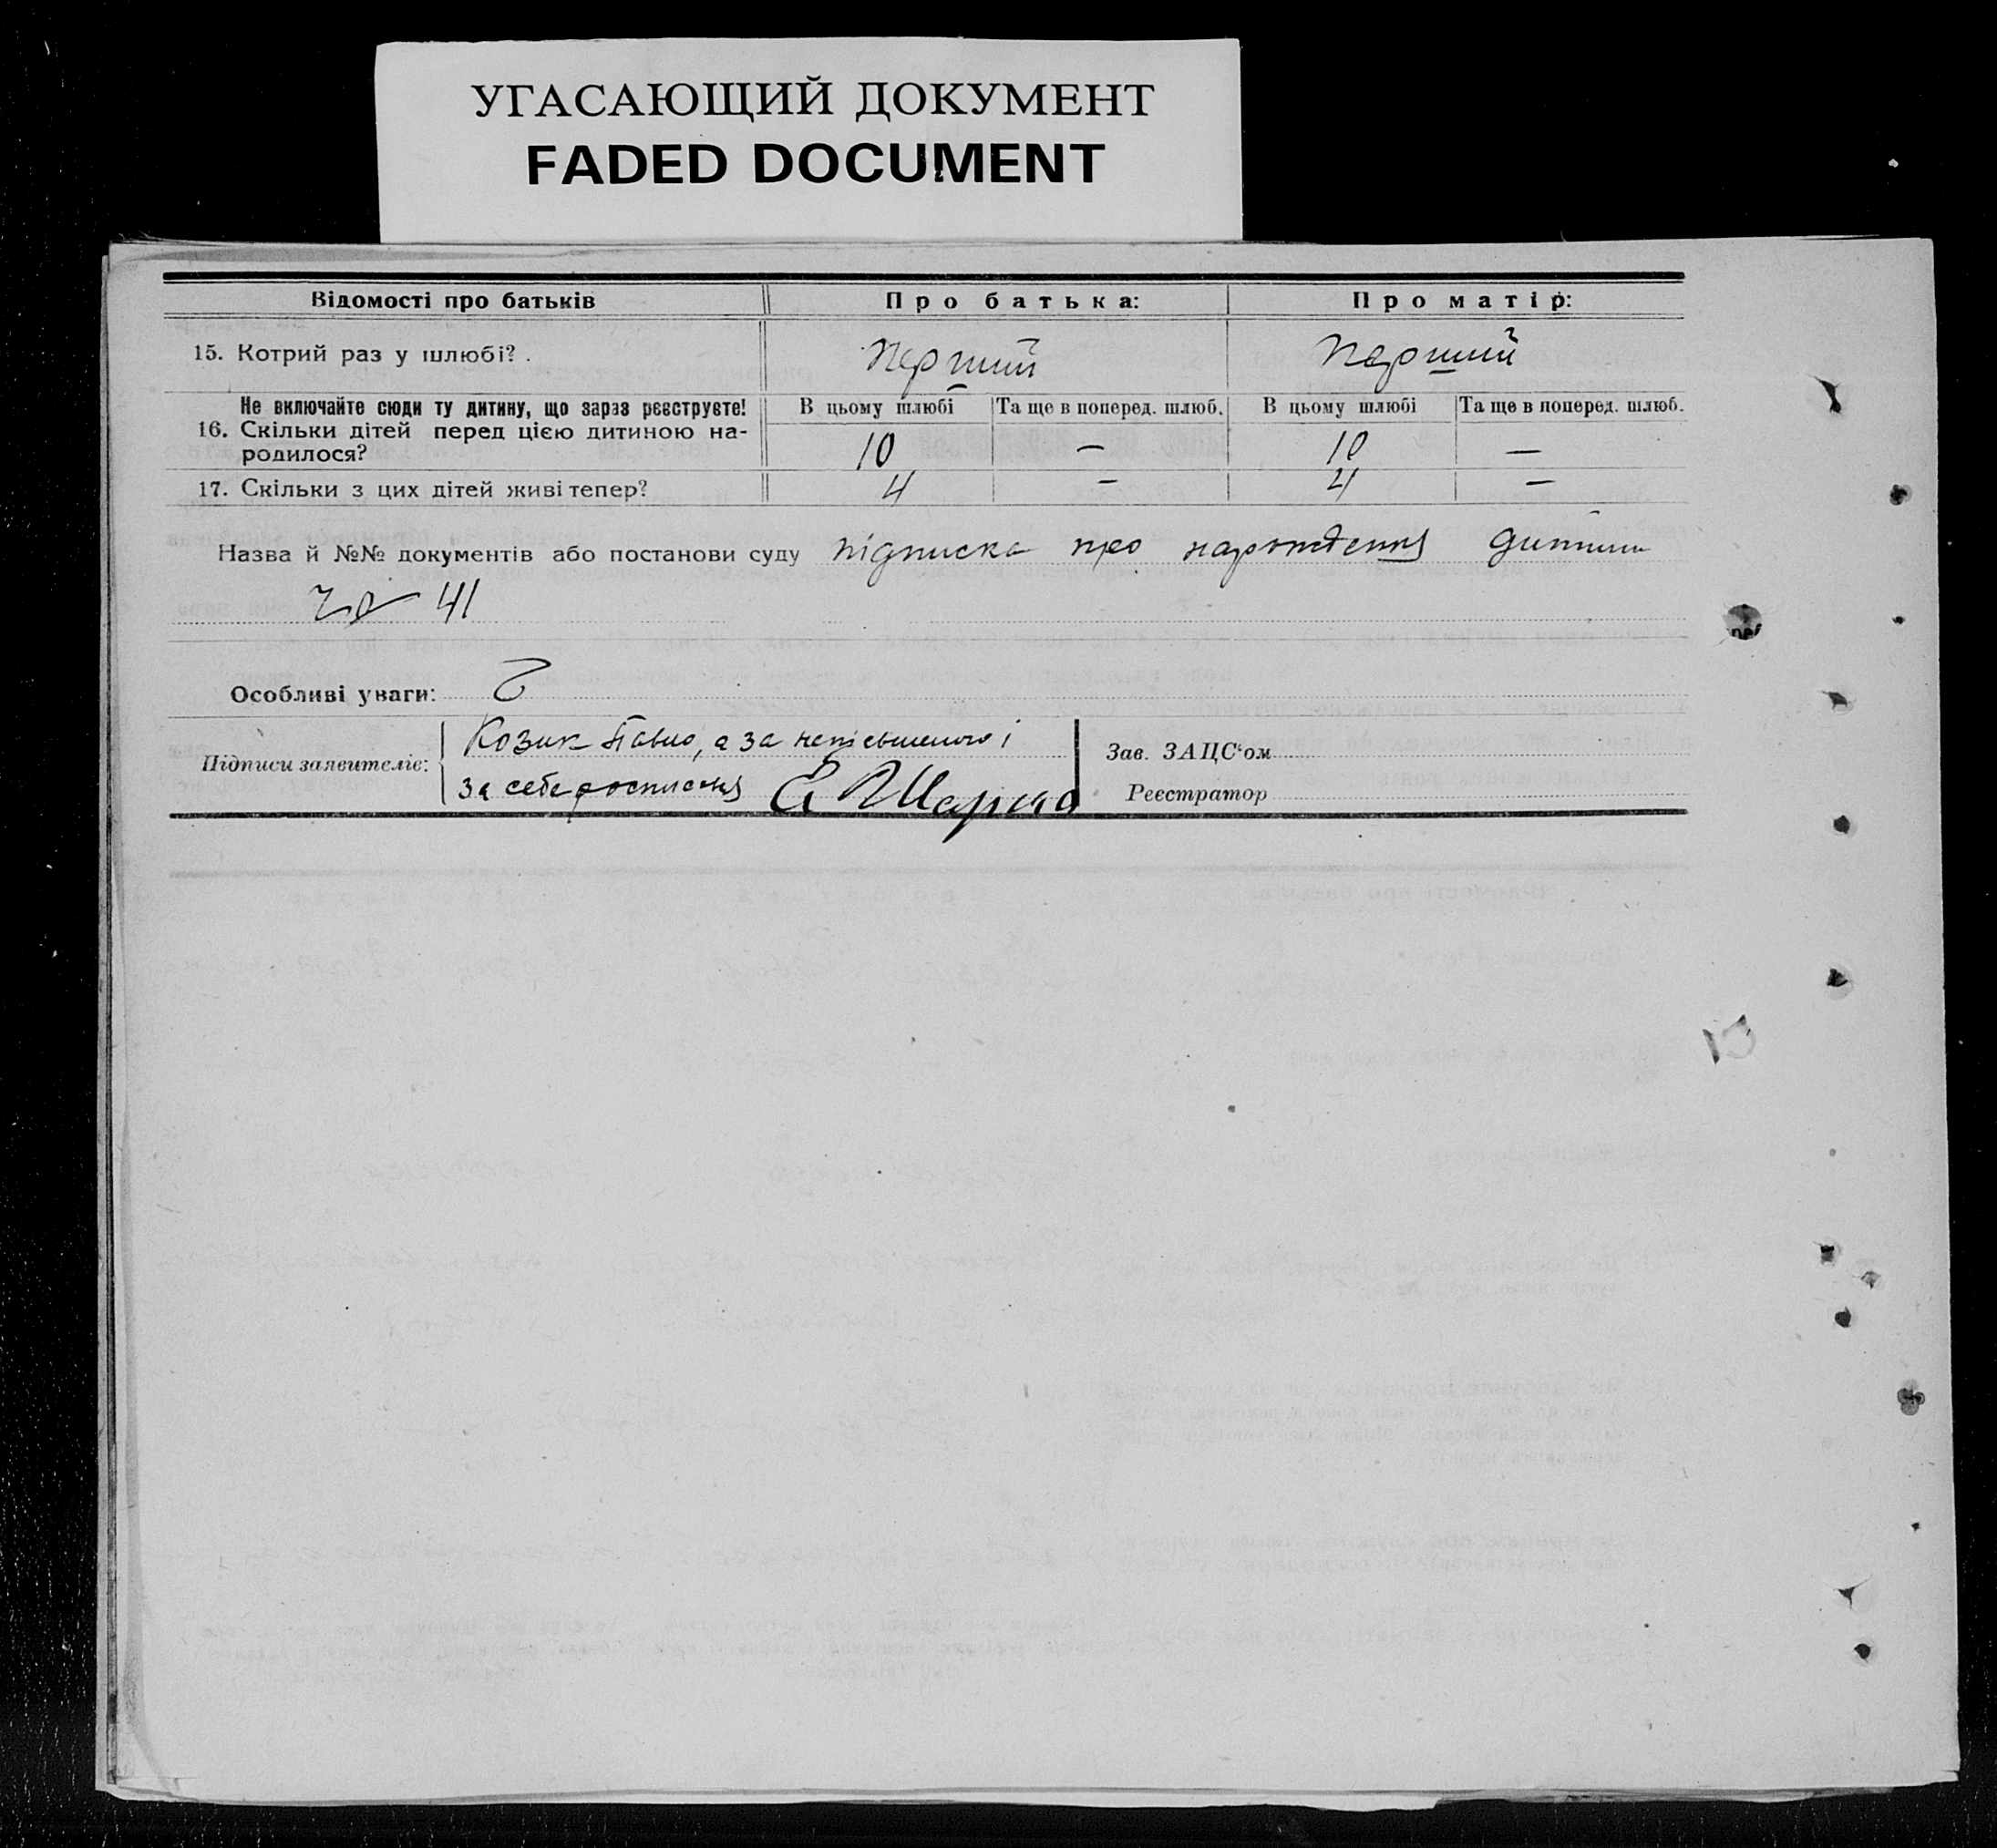 УГАСАЮЩИЙ ДОКУМЕНТ
FADED DOCUMENT
Відомості про батьків Про батька: Про матір:
15. Котрий раз у шлюбі? . Перший Перший
Не включайте сюди ту дитину, що зараз реєструєте! В цьому шлюбі Та ще в поперед. шлюб. В цьому шлюбі Та ще в поперед. шлюб.
16. Скільки дітей перед цією дитиною на-
родилося? 10 — 10 —
17. Скільки з цих дітей живі тепер? 4 — 4 —
Назва й №№ документів або постанови суду підписка про народження дитини
41
Особливі уваги:
Підписи заявителів: Козик Павло, а за неписьменого і
за себе росписався
Зав. ЗАЦС'ом
Реєстратор